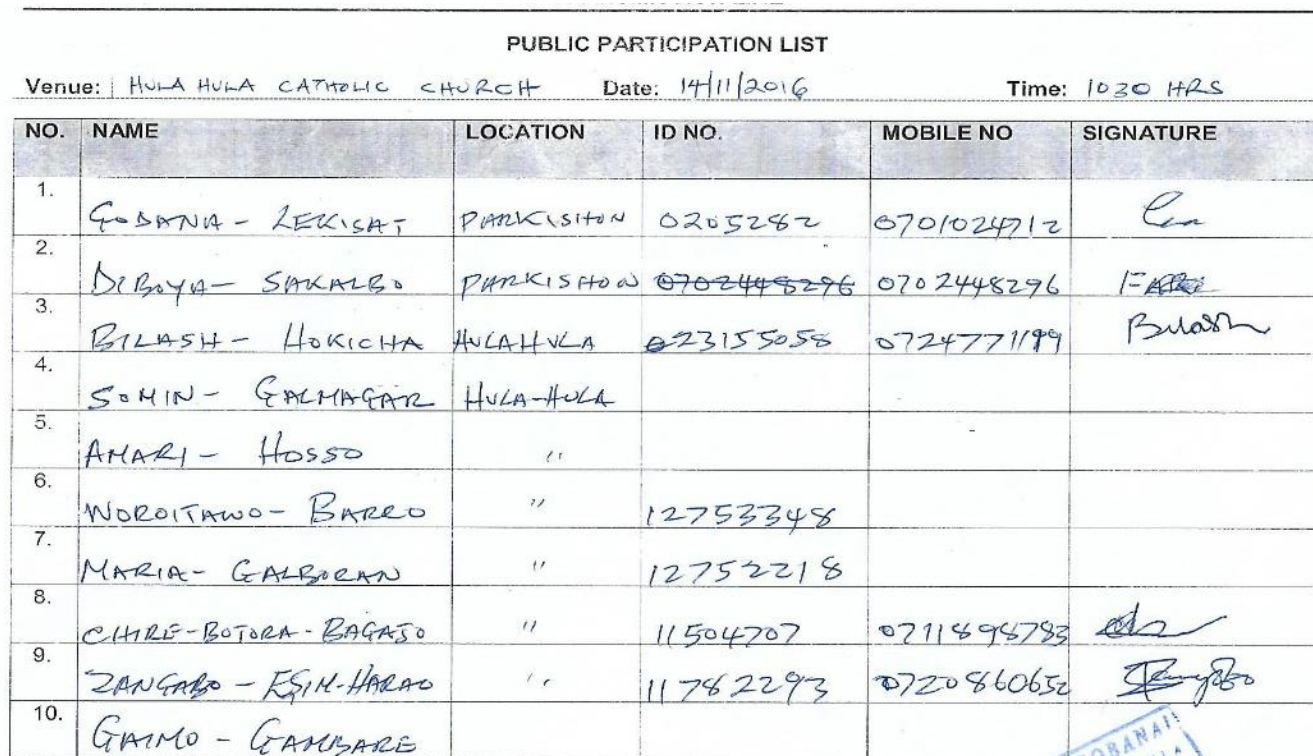 PUBLIC PARTICIPATION LIST
Venue: HULA HULA CATHOLIC CHURCH Date: 14/11/2016 Time: 1030 HRS
NO. NAME LOCATION ID NO. MOBILE NO SIGNATURE
1. GODANA - LEKISAT PARKISHON 0205282 0701024712
2. DIBOYA - SAKALBO PARKISHON 0702448296 0702448296
3. BILASH - HOKICHA HULAHULA 023155058 0724771199 Bilash
4. SOMIN - GALMAGAR HULA-HULA
5. AMARI - HOSSO "
6. WOROITAWO - BARRO " 12753348
7. MARIA - GALBORAN " 12752218
8. CHIRE-BOTORA-BAGAJO " 11504707 0711898783
9. ZANGABO - ESIM-HARAO " 11782293 0720860652
10. GAIMO - GAMBARE